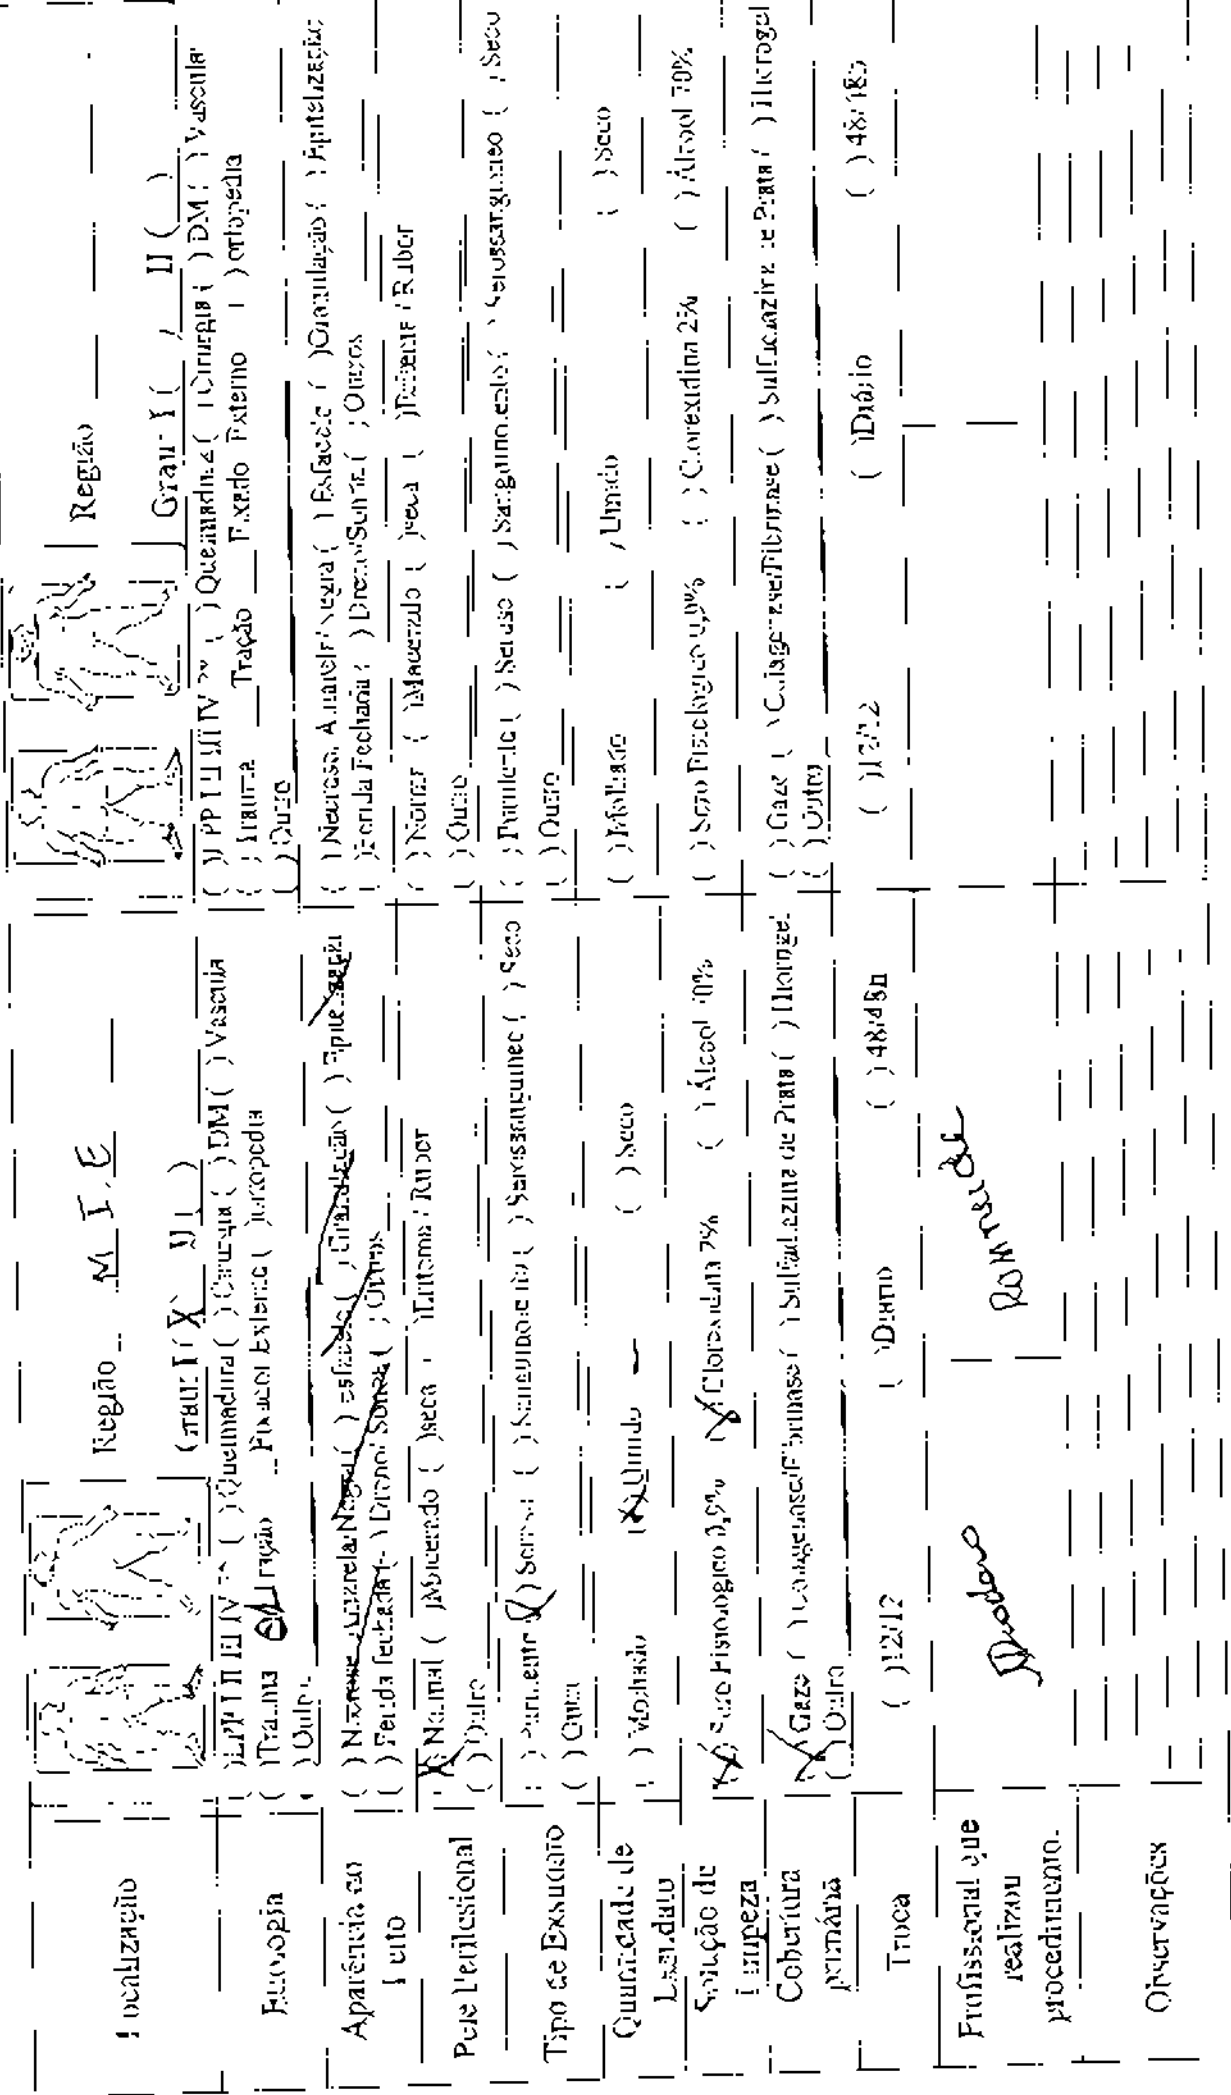 Localização
Região M I E
Grau I (X) II ( )
Região
Grau I ( ) II ( )
Etiologia
( )LPP I II III IV ( )Queimadura ( )Cirurgia ( )DM ( )Vascula
( )Trauma Tração Fixador Externo ( )ortopedia
( )Outro
( )LPP I II III IV ( )Queimadura ( )Cirurgia ( )DM ( )Vascula
( )Trauma Tração Fixado Externo ( )ortopedia
( )Outro
Aparência do
Leito
( )Necrose Amarela/Negra ( )esfacelo ( )Granulação ( )Epitelização
( )Ferida fechada ( )Dreno/Sonda ( )Outros
( )Necrose Amarela/Negra ( )Esfacelo ( )Granulação ( )Epitelização
( )Ferida Fechada ( )Dreno/Sonda ( )Outros
Pele Perilesional
(X)Normal ( )Macerado ( )seca ( )Eritema / Rubor
( )Outro
( )Normal ( )Macerado ( )seca ( )Eritema / Rubor
( )Outro
Tipo de Exsudato
( )Purulento (X)Seroso ( )Sanguinolento ( )Serossanguineo ( )Seco
( )Outro
( )Purulento ( )Seroso ( )Sanguinolento ( )Serossanguineo ( )Seco
( )Outro
Quantidade de
Exsudato
( )Molhado (X)Umido ( )Seco
( )Molhado ( )Umido ( )Seco
Solução de
Limpeza
(X)Soro Fisiologico 0,9% (X)Clorexidina 2% ( )Álcool 70%
( )Soro Fisiologico 0,9% ( )Clorexidina 2% ( )Álcool 70%
Cobertura
primária
(X)Gaze ( )Colagenase/Fibrinase ( )Sulfadiazina de Prata ( )Hidrogel
( )Outro
( )Gaze ( )Colagenase/Fibrinase ( )Sulfadiazina de Prata ( )Hidrogel
( )Outro
Troca
( )12/12 ( )Diário ( )48/48h
( )12/12 ( )Diário ( )48/48h
Profissional que
realizou
procedimento.
Observações